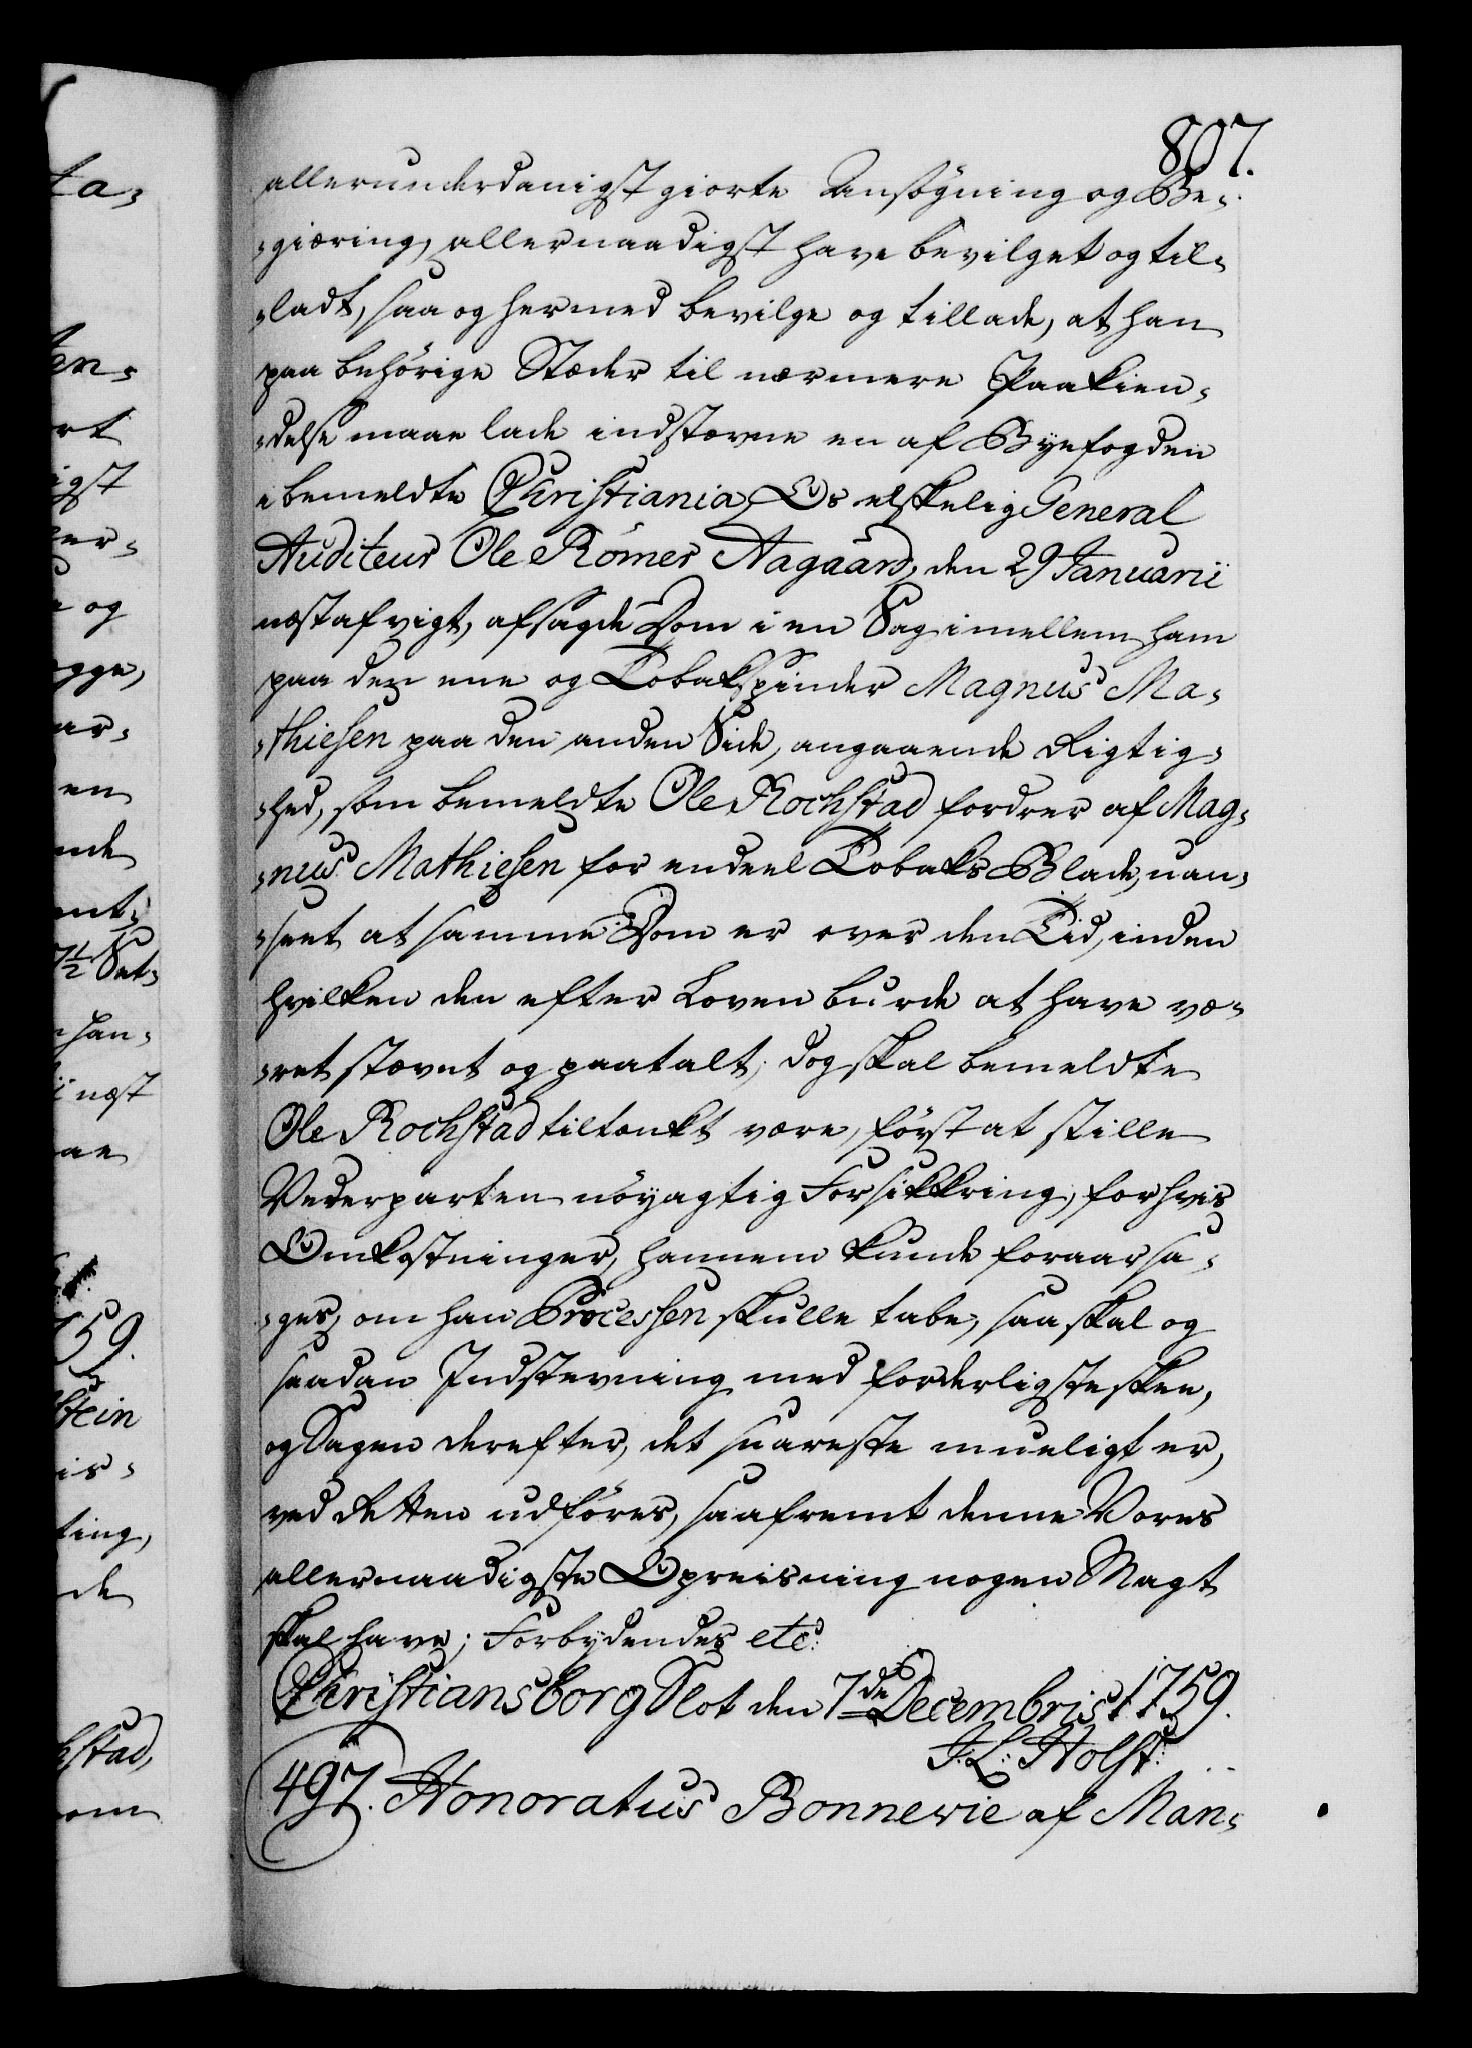 807.
allerunderdanigst giorte Ansögning og Be-
-giæring, allernaadigst have bevilget og til-
-ladt, saa og hermed bevilge og tillade, at han
paa behörige Stæder til nærmere Paakien-
-delse maae lade indstævne en af Byefogden
i bemeldte Christiania, Os elskelig General
Auditeur Ole Römer Aagaard, den 29 Januarii
næstafvigt, afsagde Dom i en Sag imellem ham
paa den ene og Tobakspinder Magnus Ma-
-thiesen paa den anden Side, angaaende Rigtig-
-hed, som bemeldte Ole Rochstad fordrer af Mag-
-nus Mathiesen for endeel Tobaks Blade, uan-
-seet at samme Dom er over den Tid, inden
hvilken den efter Loven burde at have væ-
-ret stævnt og paatalt; dog skal bemeldte
Ole Rochstad tiltænkt være, först at stille
Vederparten nöyagtig Forsikkring, for hvis
Omkostninger, hannem kunde foraarsa-
-ges, om han Processen skulle tabe, saa skal og
saadan Indstevning med forderligste skee,
og Sagen derefter, det snareste mueligt er,
ved Retten udföres, saafremt denne Vores
allernaadigste Opreisning nogen Magt
skal have; Forbydendes etc:
Christiansborg Slot den 7de Decembris 1759.
J. L: Holst:
497. Honoratus Bonnevie af Man-